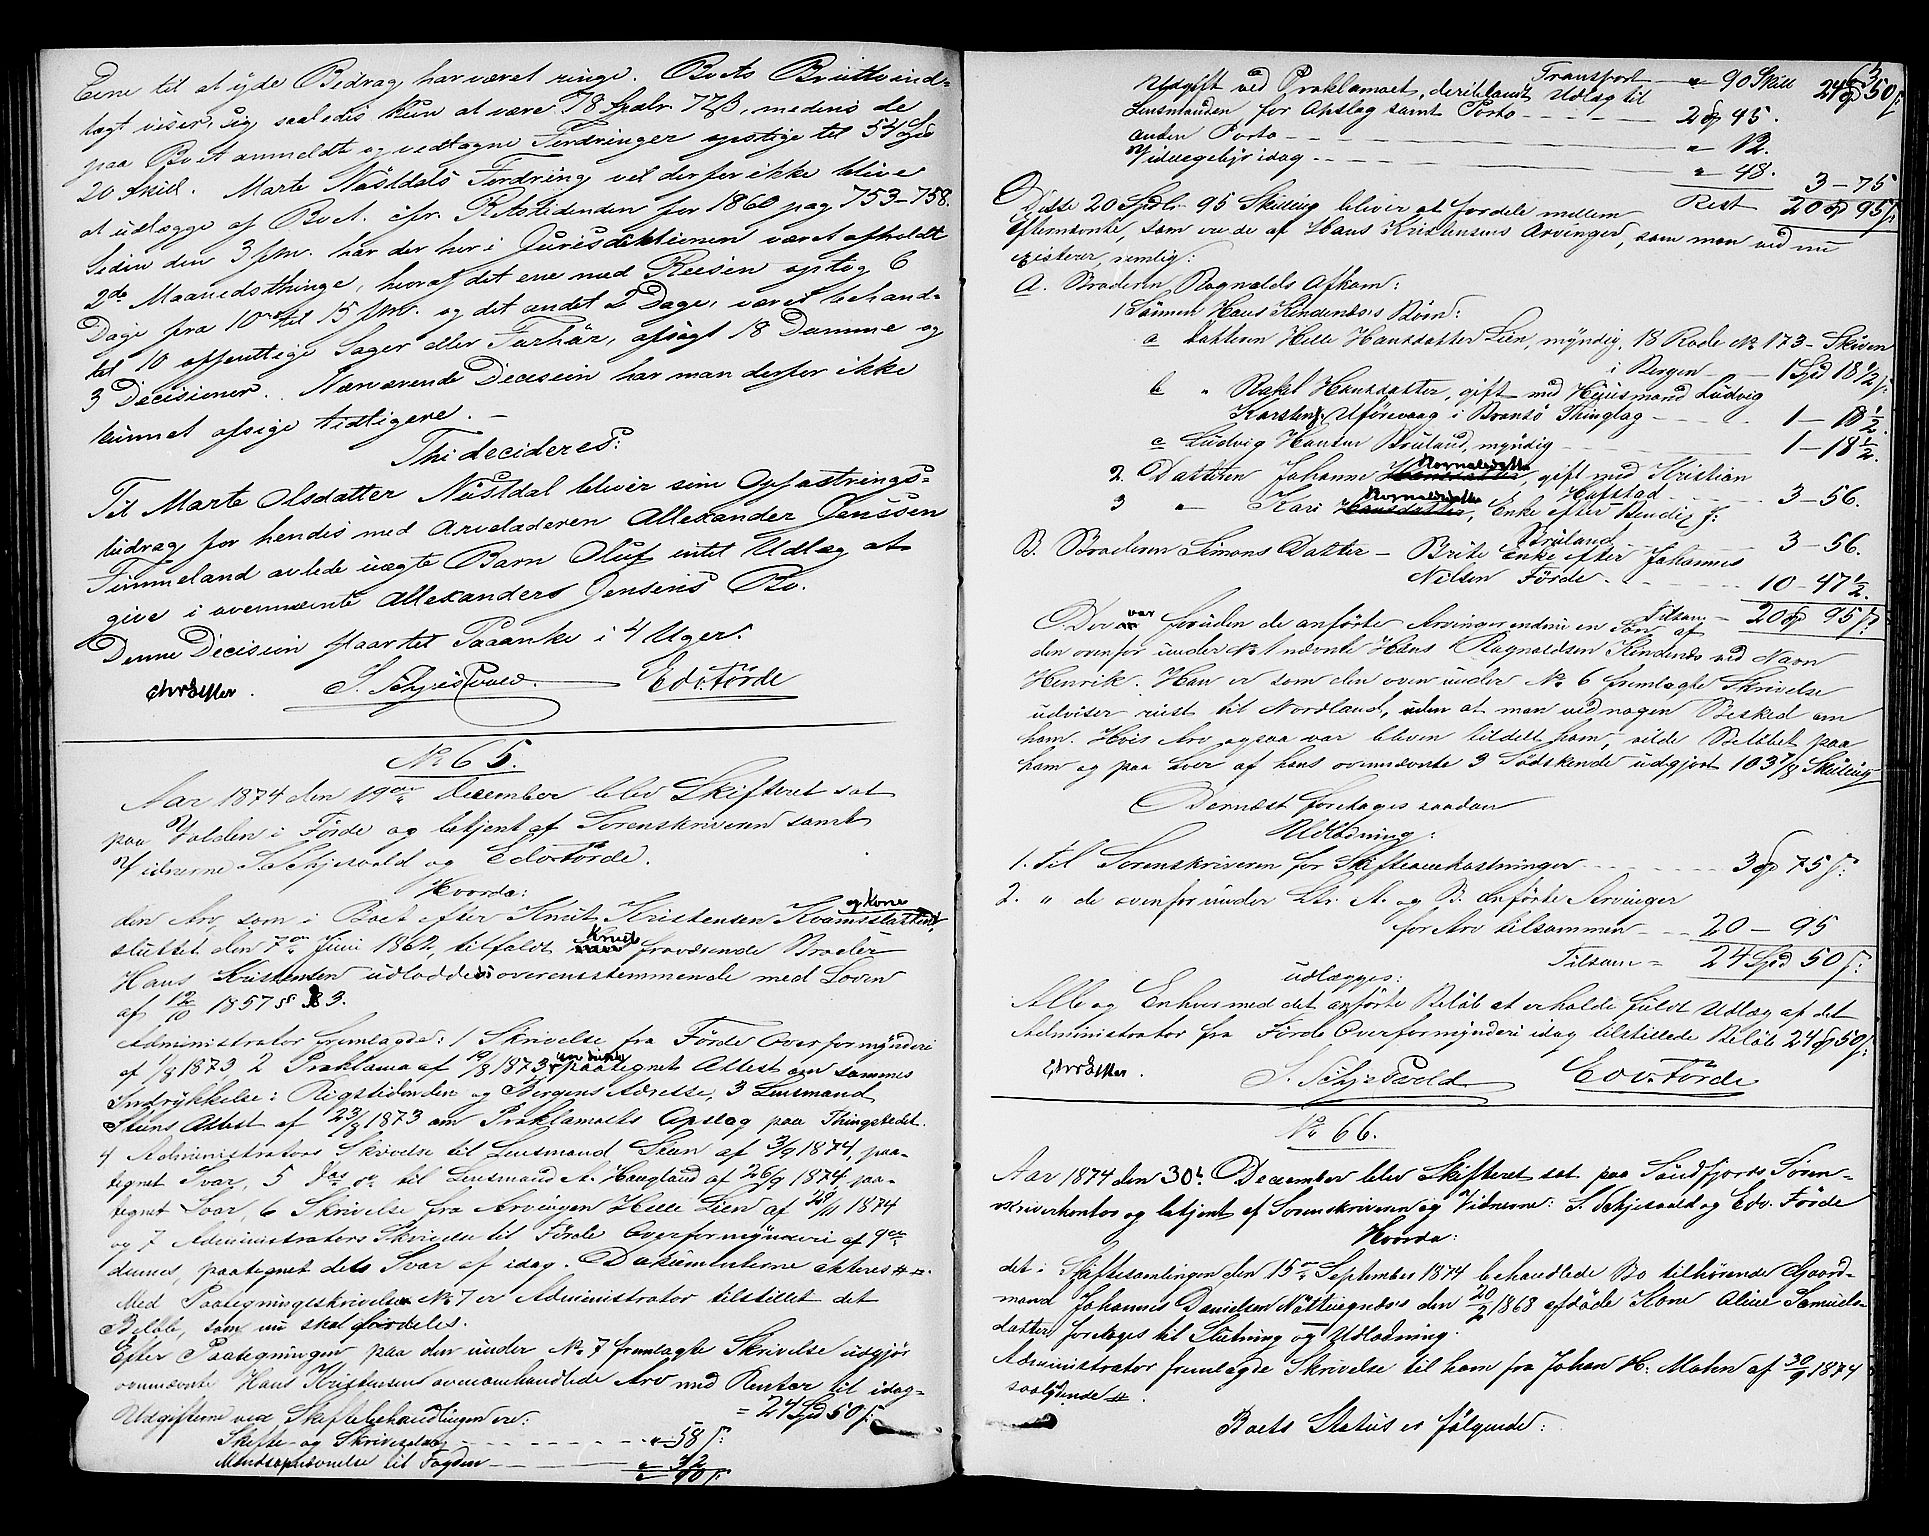 Evne til at yde Bidrag har været ringe. Boets Bruttoind-
tægt viser sig saaledes kun at være 78 Spdlr. 72 ß, medens de
paa Boet anmeldte og vedtagne Fordringer opstige til 54 Spd
20 Skill. Marte Nøstdals Fordring vil derfor ikke blive
at udlægge af Boet. cfr. Retstidenden for 1860 pag 753-758.
Siden den 3 f.M. har der her i Jurisdiktionen været afholdt
2de Maanedsthinge, hvoraf det ene med Reisen optog 6
Dage fra 10de til 15 f.M. og det andet 2 Dage, været behand-
let 10 offentlige Sager eller Forhør, afsagt 18 Domme og
3 Decisioner. Nærværende Decision har man derfor ikke
kunnet afsige tidligere. –
Thi decideres:
Til Marte Olsdatter Nøstdal bliver som Opfostrings-
bidrag for hendes med Arveladeren Allexander Jenssen
Timmeland avlede uægte Barn Oluf intet Udlæg at
give i ovennævnte Allexanders Jensens Bo.
Denne Decision staar til Paaanke i 4 Uger.
S. Schjesvold. Edv. Førde
No 65.
Aar 1874 den 19de December blev Skifteret sat
paa Volden i Førde og betjent af Sorenskriveren samt
Vidnerne S. Schjesvold og Edv. Førde.
Hvorda:
den Arv, som i Boet efter Knut Kristensen Kvamsslatten og Kone
sluttet den 7de Juni 1862, tilfaldt Knuts fraværende Broder
Hans Kristensen udloddedes overensstemmende med Loven
af 12/10 1857 § 3.
Administrator fremlagde: 1 Skrivelse fra Førde Overformynderi
af 1/8 1873 2 Proklama af 19/8 1873, paategnet Attest om sammes
Indrykkelse i Rigstidenden og Bergens Adresse, 3 Lensmand
Steens Attest af 23/8 1873 om Proklamaets Opslag paa Thingstedet.
4 Administrators Skrivelse til Lensmand Steen af 3/9 1874, paa-
tegnet Svar, 5 Do Do til Lensmand A. Haugland af 26/9 1874, paa-
tegnet Svar, 6 Skrivelse fra Arvingen Helle Lien af 28/11 1874
og 7 Administrators Skrivelse til Førde Overformynderi af 9de
dennes, paategnet dets Svar af idag. Dokumenterne akteres #.
Med Paategningsskrivelse No 7 er Administrator tilstillet det
Beløb, som nu skal fordeles.
Efter Paategningen paa den under No 7 fremlagte Skrivelse udgjør
ovennævnte Hans Kristensens omhandlede Arv med Renter til idag
= 24 Spd 50 ß.
Udgifterne ved Skiftebehandlingen ere:
Skifte- og Skriversalær – – – " 58 ß:
Mandsopnævnelse til Fogden – – – " 32
" 90 ß.
63
Transport – " 90 Skill 24 Spd 50 ß
Udgift ved Proklamaet, deriblandt Udlæg til
Lensmanden for Opslag samt Porto – – – 2 Spd 45.
anden Porto – – – " 12.
Vidnegebyr idag – – – " 48.
3 – 75
Rest 20 Spd 95 ß
Disse 20 Spdlr 95 Skilling bliver at fordele mellem
Eftermævnte, som ere de af Hans Kristensens Arvinger, som man ved nu
existerer, nemlig:
A. Broderen Rognalds Afkom:
1 Sønnen Hans Kindenæs's Børn:
a Datteren Helle Hansdatter Lien, myndig, 18 Rode No 173 – Skiven
i Bergen – 1 Spd 18 1/2 ß.
b " Rakel Hansdatter, gift med Huusmand Ludvig
Karstens. Uførevaag i Bransø Thinglag – – 1 – 18 1/2.
c Ludvig Hansen Bruland, myndig – – 1 – 18 1/2.
2. Datteren Johanne Rognaldsdatter, gift med Kristian
Hafstad – – 3 – 56.
3 " Kari Rognaldsdatter, Enke efter Bendix J:
Bruland – 3 – 56.
B. Broderen Simons Datter – Brite Enke efter Johannes
Nilsen Førde – – 10 – 47 1/2.
Tilsam – 20 Spd 95 ß:
Der var foruden de anførte Arvinger endnu en Søn af
den ovenfor under No 1 nævnte Hans Rognaldsen Kindenæs ved Navn
Henrik. Han er som den oven under No 6 fremlagte Skrivelse
udviser reist til Nordland, uden at man ved nogen Besked om
ham. Hvis Arv ogsaa var bleven tildelt ham, vilde Beløbet paa
ham og paa hver af hans ovennævnte 3 Sødskende udgjort 103 7/8 Skilling
Dernæst foretages saadan
Udlodning:
1. Til Sorenskriveren for Skifteomkostninger – – – 3 Spd 75 ß.
2. " de ovenfor under Litr. A. og B. anførte Arvinger
for Arv tilsammen – – 20 – 95
Tilsam = 24 Spd 50 ß:
udlægges:
Alle og Enhver med det anførte Beløb at erholde fuldt Udlæg af det
Administrator fra Førde Overformynderi idag tilstillede Beløb 24 Spd 50 ß:
S. Schjesvold Edv. Førde
No 66.
Aar 1874 den 30te December blev Skifteret sat paa Søndfjords Soren-
skriverkontor og betjent af Sorenskriveren og Vidnerne: S. Schjesvold og Edv. Førde
Hvorda:
det i Skiftesamlingen den 15de September 1874 behandlede Bo tilhørende Gaard-
mand Johannes Danielsen Nøttvegnæs's den 20/2 1868 afdøde Kone Aline Samuels-
datter foretages til Slutning og Udlodning.
Administrator fremlagde Skrivelse til ham fra Johan H. Malen af 30/9 1874
saalydende #.
Boets Status er følgende: